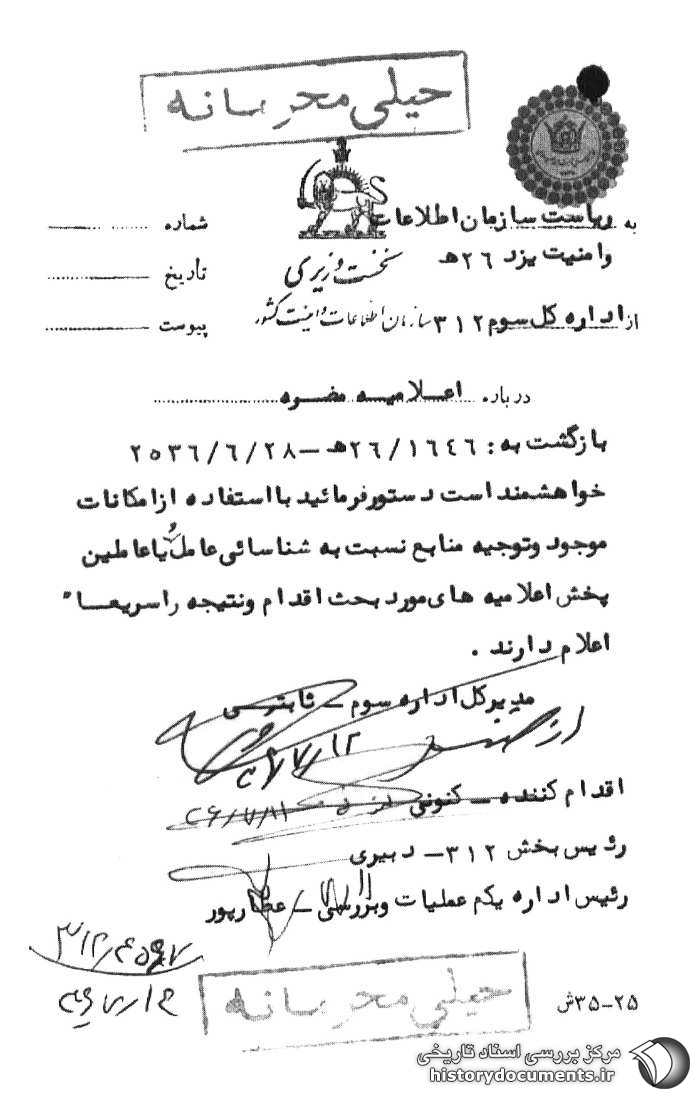 خیلی محرمانه
به ریاست سازمان اطلاعات
وامنیت یزد ۲۶هـ
نخست وزیری
از اداره کل سوم ۳۱۲
سازمان اطلاعات و امنیت کشور
شماره
تاریخ
پیوست
درباره اعلامیه مضره
بازگشت به: ۲۶/۱۶۴۶هـ – ۲۵۳۶/۶/۲۸
خواهشمند است دستورفرمائید بااستفاده ازامکانات
موجود وتوجیه منابع نسبت به شناسائی عامل و یاعاملین
پخش اعلامیه های مورد بحث اقدام ونتیجه راسریعا"
اعلام دارند .
مدیرکل اداره سوم – ثابتی
از طرف
۳۶/۷/۱۲
اقدام کننده – کنونی
۳۶/۷/۱۱
رئیس بخش ۳۱۲ – دبیری
رئیس اداره یکم عملیات وبررسی – عطارپور
۳۶/۷/۱۲
خیلی محرمانه
۲۵–۳۵ش
مرکز بررسی اسناد تاریخی
historydocuments.ir